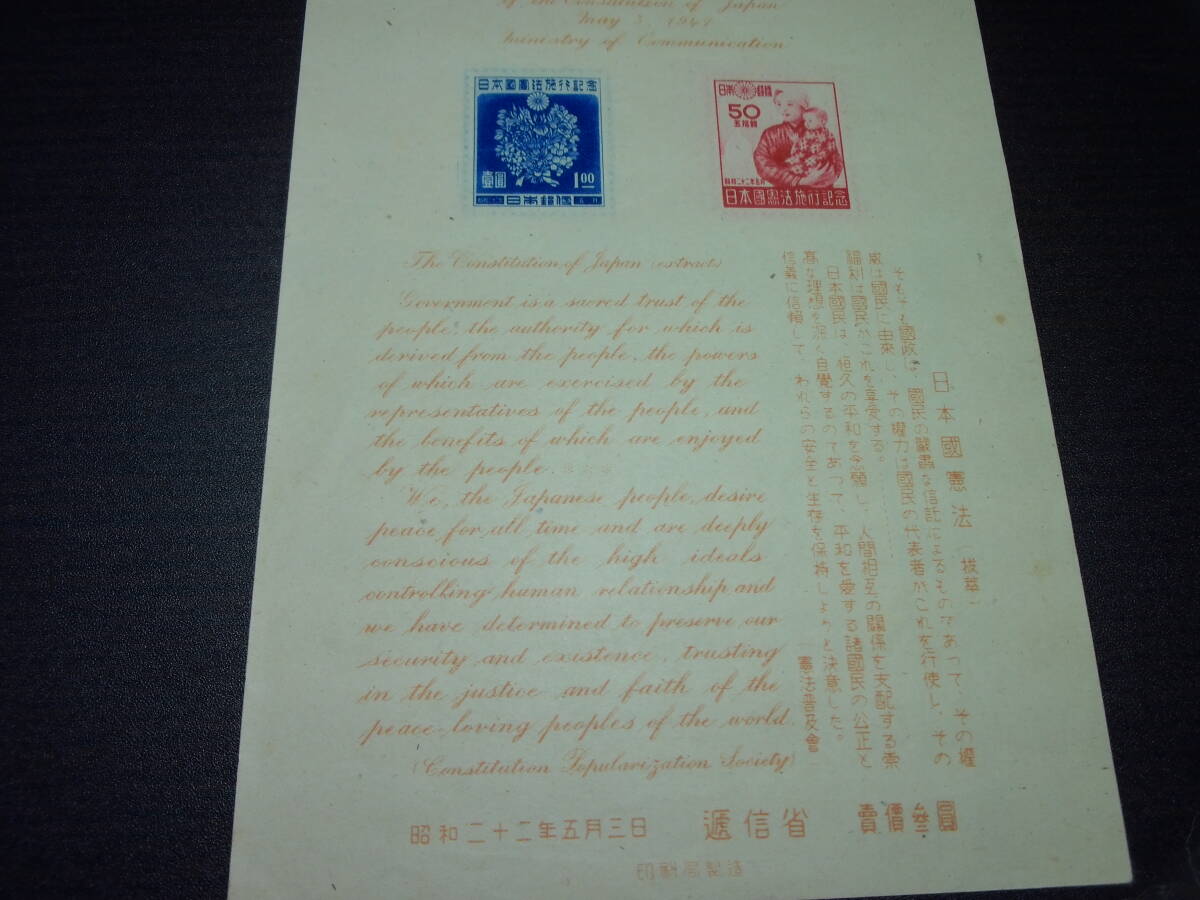 of the Constitution of Japan
May 3, 1947
Ministry of Communication
日本國憲法施行記念
壹圓
1.00
日本郵便
日本郵便
50
五拾錢
昭和二十二年五月
日本國憲法施行記念
The Constitution of Japan (extracts)
Government is a sacred trust of the
people, the authority for which is
derived from the people, the powers
of which are exercised by the
representatives of the people, and
the benefits of which are enjoyed
by the people.
We, the Japanese people, desire
peace for all time and are deeply
conscious of the high ideals
controlling human relationship, and
we have determined to preserve our
security and existence, trusting
in the justice and faith of the
peace-loving peoples of the world.
(Constitution Popularization Society)
日本國憲法(拔萃)
そもそも國政は、國民の嚴肅な信託によるものであつて、その權
威は國民に由來し、その權力は國民の代表者がこれを行使し、その
福利は國民がこれを享受する。
日本國民は、恒久の平和を念願し、人間相互の關係を支配する崇
高な理想を深く自覺するのであつて、平和を愛する諸國民の公正と
信義に信頼して、われらの安全と生存を保持しようと決意した。
憲法普及會
昭和二十二年五月三日 遞信省 賣價參圓
印刷局製造